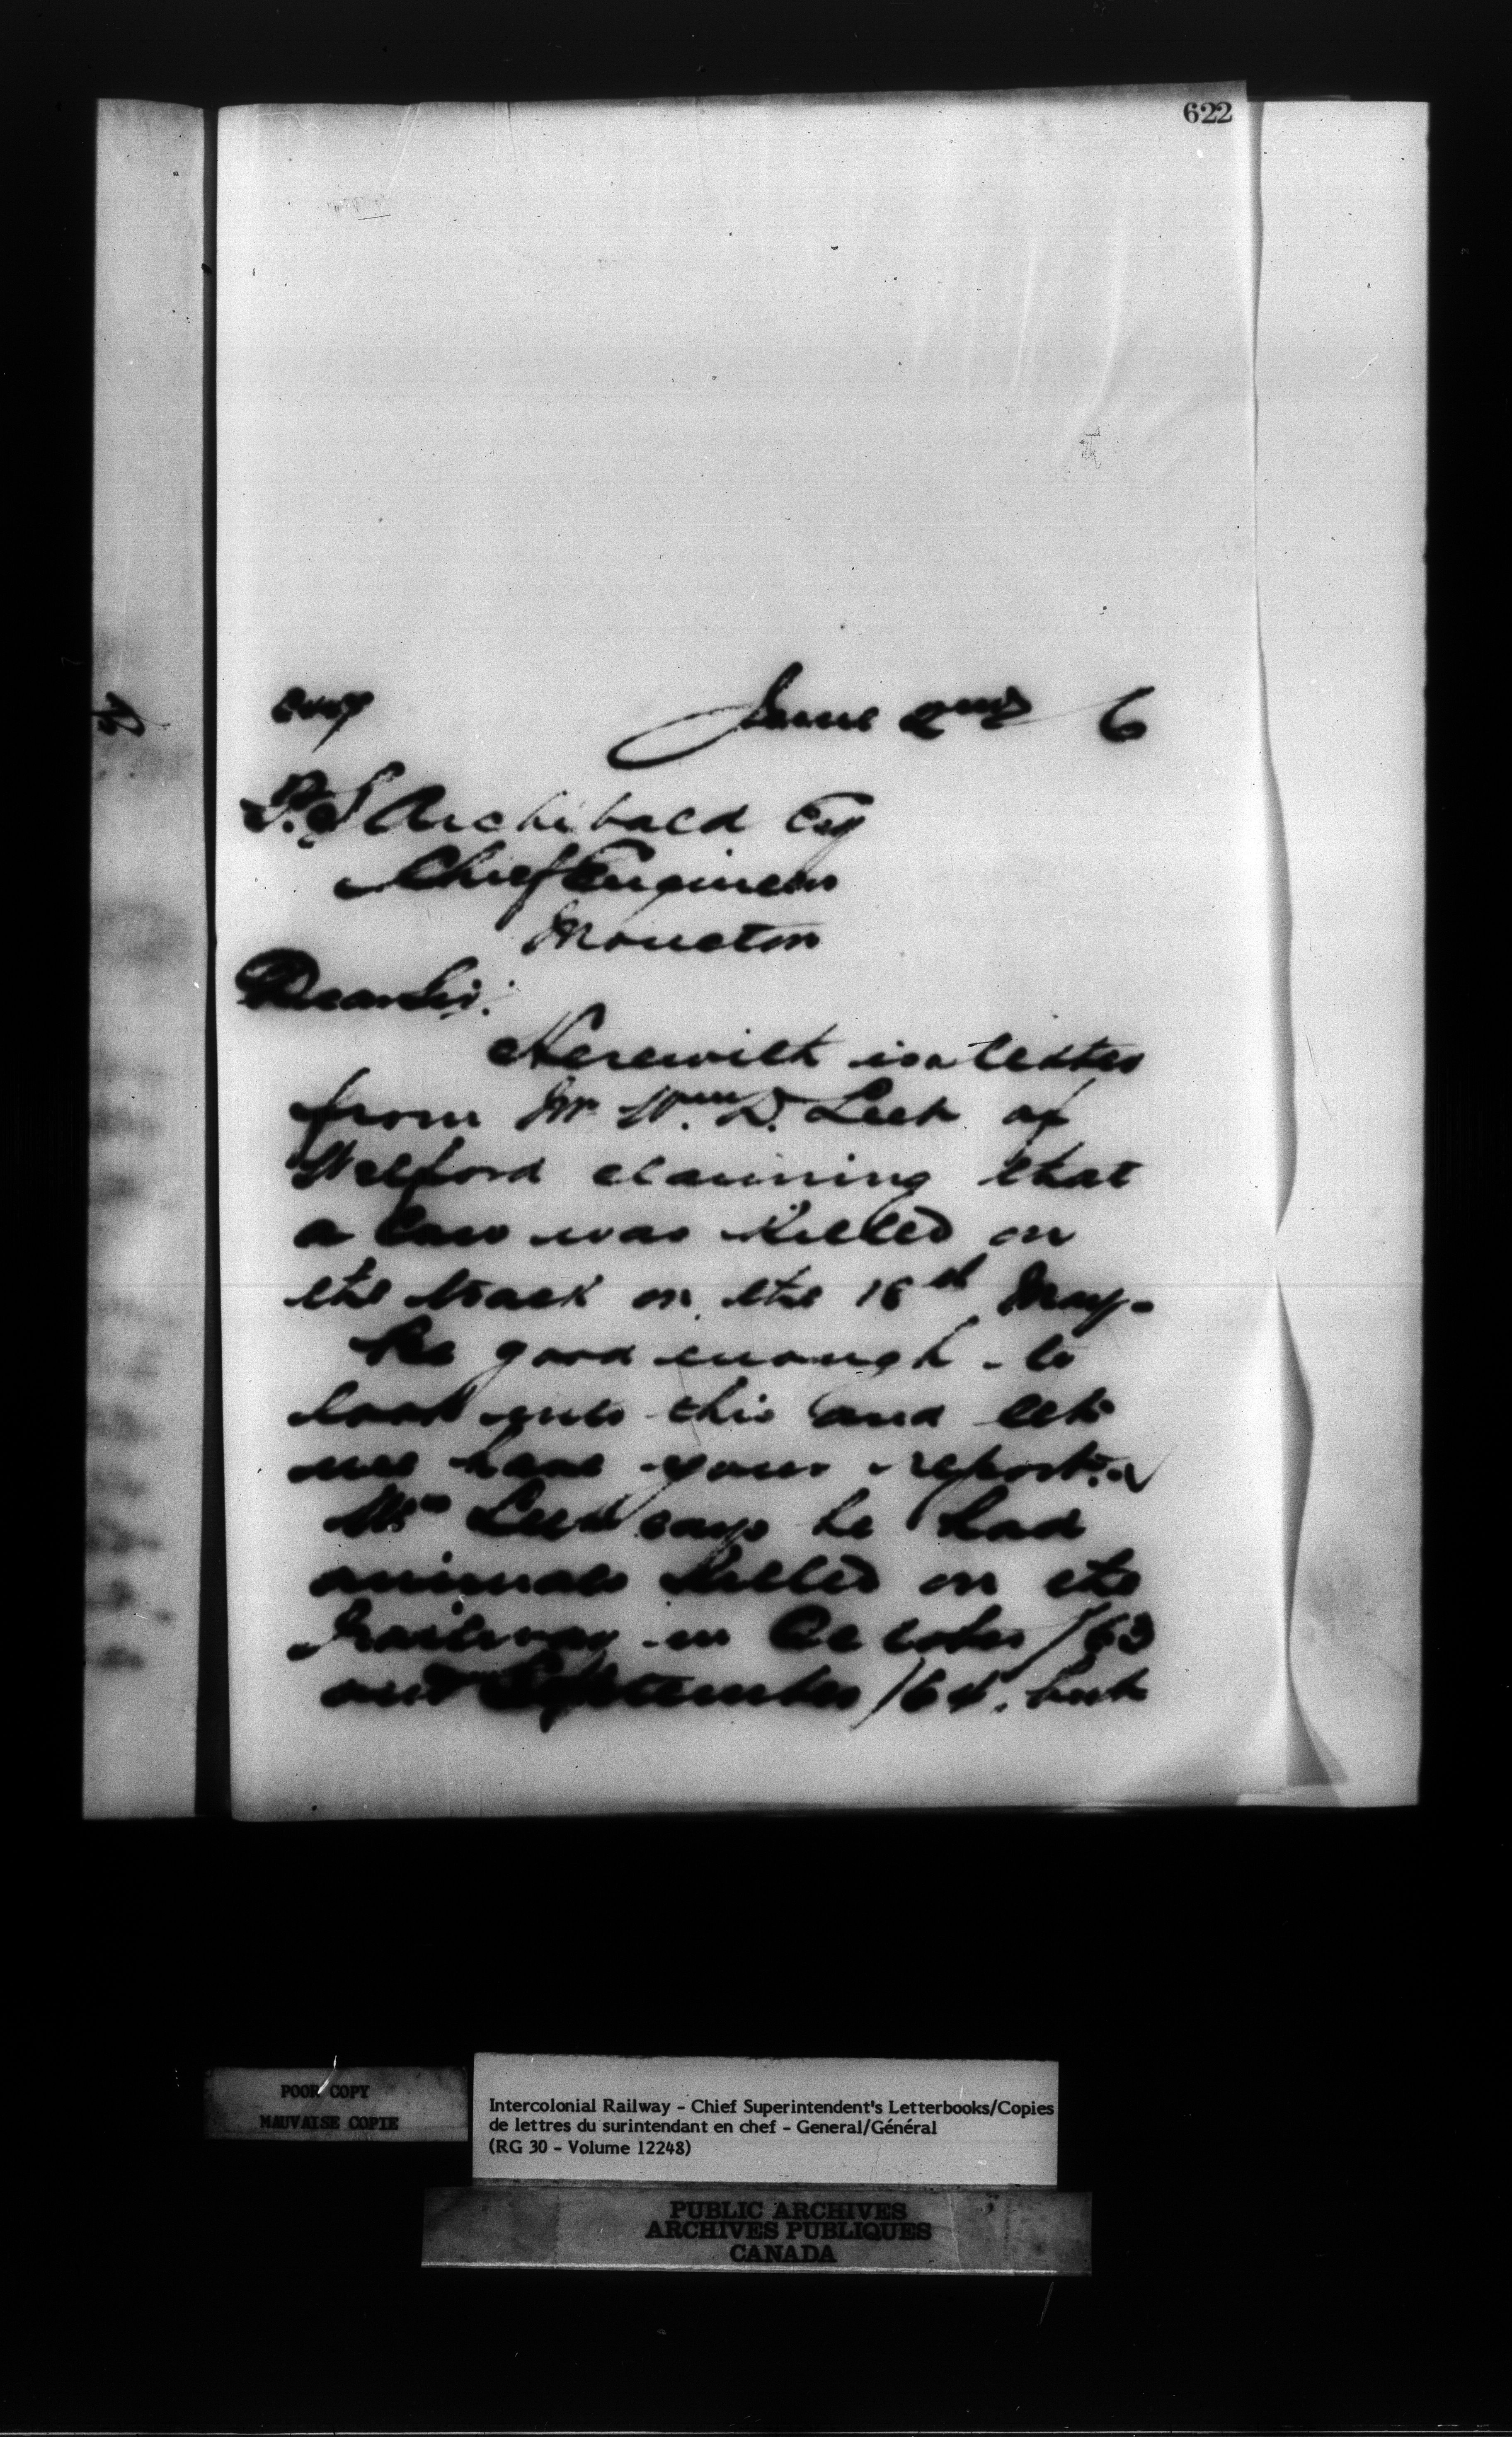 622
June 2nd 6
P. S Archibald Esq
Chief Engineer
Moncton
Dear Sir:
Herewith is a letter
from Mr Wm. D. Leek of
Welford claiming that
a Cow was Killed on
the track on the 18th May.
Be good enough to
look into this and let
me have your report.
Mr Leek says he had
animals Killed on the
Railway in October /83
and September /84. but
POOR COPY
MAUVAISE COPIE
Intercolonial Railway - Chief Superintendent's Letterbooks/Copies
de lettres du surintendant en chef - General/Général
(RG 30 - Volume 12248)
PUBLIC ARCHIVES
ARCHIVES PUBLIQUES
CANADA